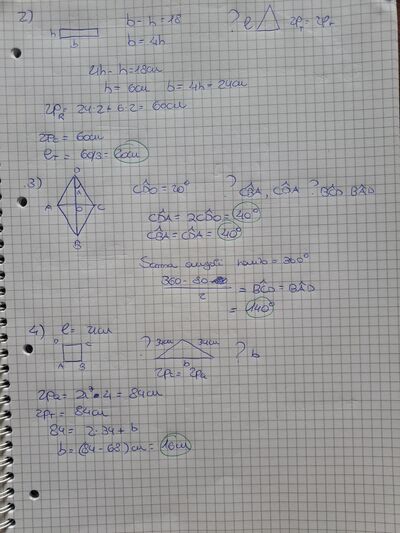 2)
h
b
b - h = 18
b = 4h
? l
2p_T = 2p_r
4h - h = 18cm
h = 6cm b = 4h = 24cm
2p_R = 24·2 + 6·2 = 60cm
2p_t = 60cm
l_T = 60/3 = 20cm
3)
D
A O C
B
CD̂O = 20°
? CB̂A, CD̂A ? BĈD BÂD
CD̂A = 2CD̂O = 40°
CB̂A = CD̂A = 40°
Somma angoli rombo = 360°
360 - 80
2
= BĈD = BÂD
= 140°
4) l = 21cm
D C
A B
? 34cm 34cm
b
? b
2p_t = 2p_Q
2p_Q = 21·4 = 84cm
2p_T = 84cm
84 = 2·34 + b
b = (84 - 68)cm = 16cm